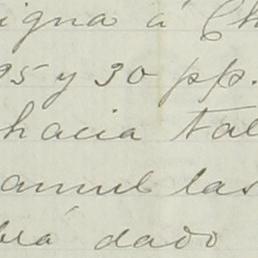 igna á Ch
95 y 30 pp.
hacia tal
anul las
blá dado